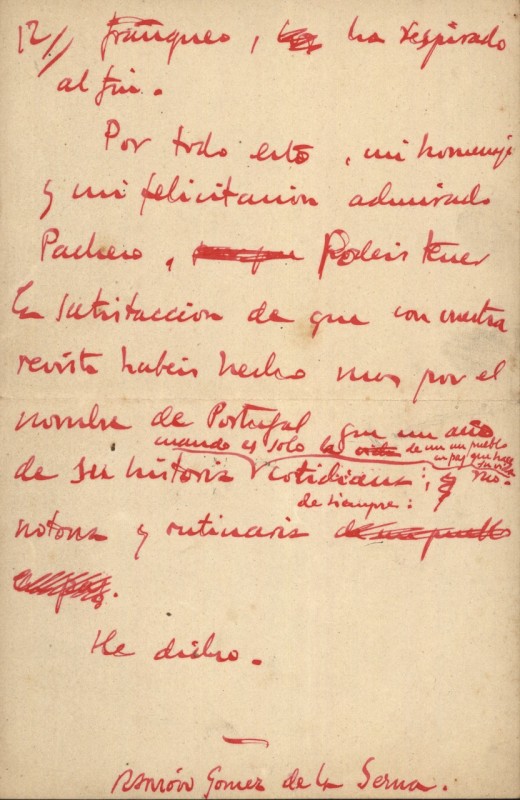 12// franqueo, ha respirado
al fin.
Por todo esto, mi homenaje
y mi felicitacion admirado
Pacheco, Podeis tener
la satisfaccion de que con vuestra
revista habeis hecho mas por el
nombre de Portugal que un año
cuando es solo la vida de un pueblo
en paz que hace
su vida
de su historia cotidiana, y
de siempre:
notona y rutinaria
He dicho.
Ramón Gomez de la Serna.